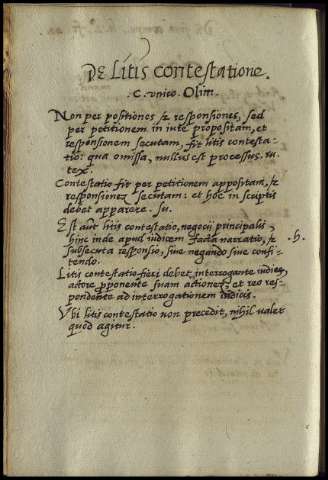 De Litis contestatione.
.C. vnico. Olim.
Non per positiones, & responsiones, sed
per petitionem in iure propositam, et
responsionem secutam, fit litis contesta-
tio: qua omissa, nullus est processus. iu.
tex.
Contestatio fit per petitionem appositam, &
responsionem secutam: et hoc in scriptis
debet apparere. Su.
Est aut litis contestatio, negocij principalis
hinc inde apud iudicem facta narratio, &
.h.
subsecuta responsio, siue negando siue confi-
tendo.
Litis contestatio fieri debet, interrogante iudice,
actore proponente suam actionem, et reo res-
pondente ad interrogationem iudicis.
Vbi litis contestatio non precedit, nihil valet
quod agitur.